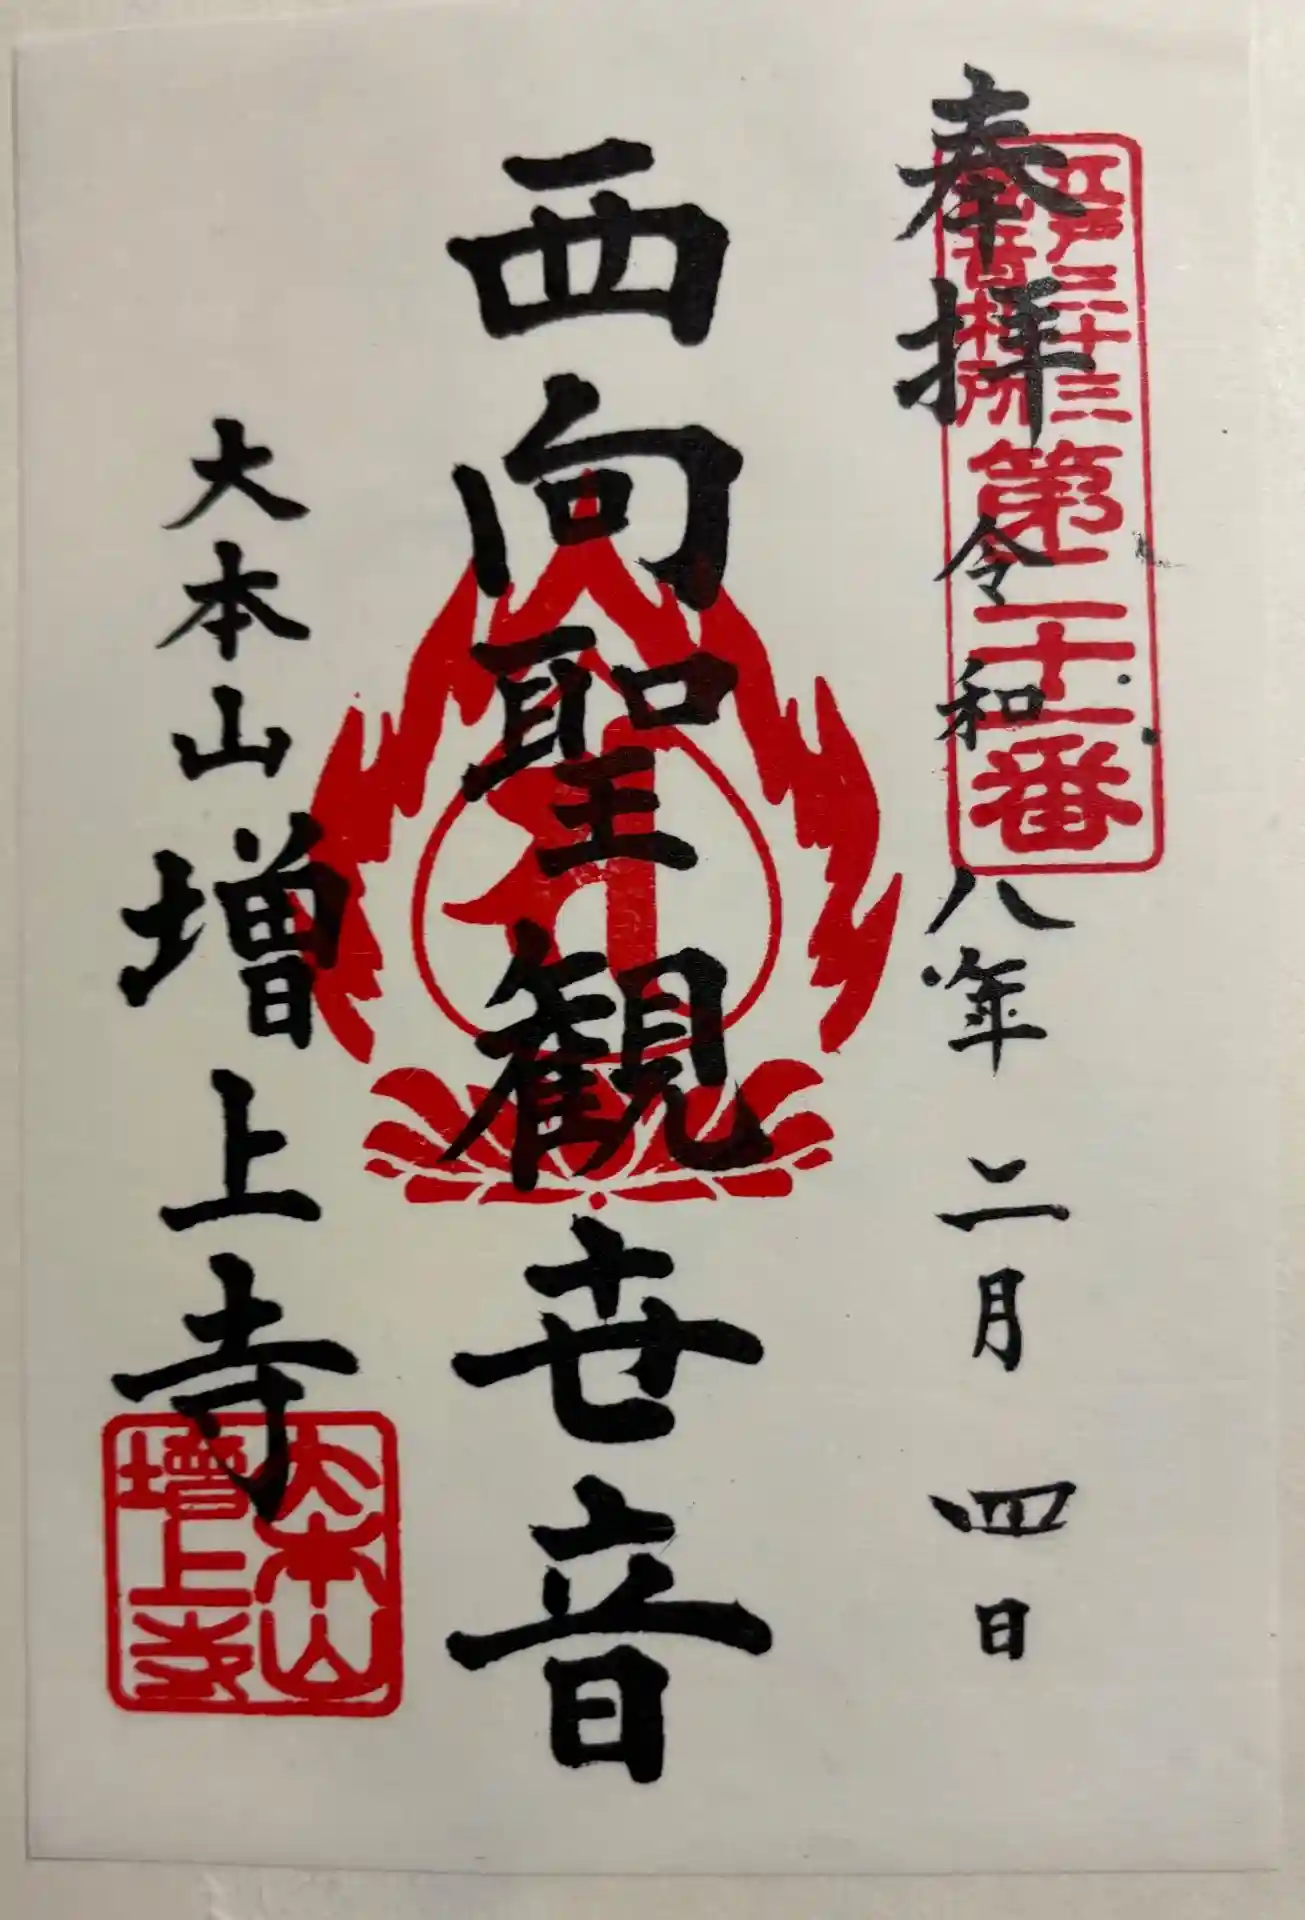 奉拝
江戸三十三
観音札所
第二十一番
令和八年二月四日
西向聖観世音
大本山増上寺
大本山
増上寺